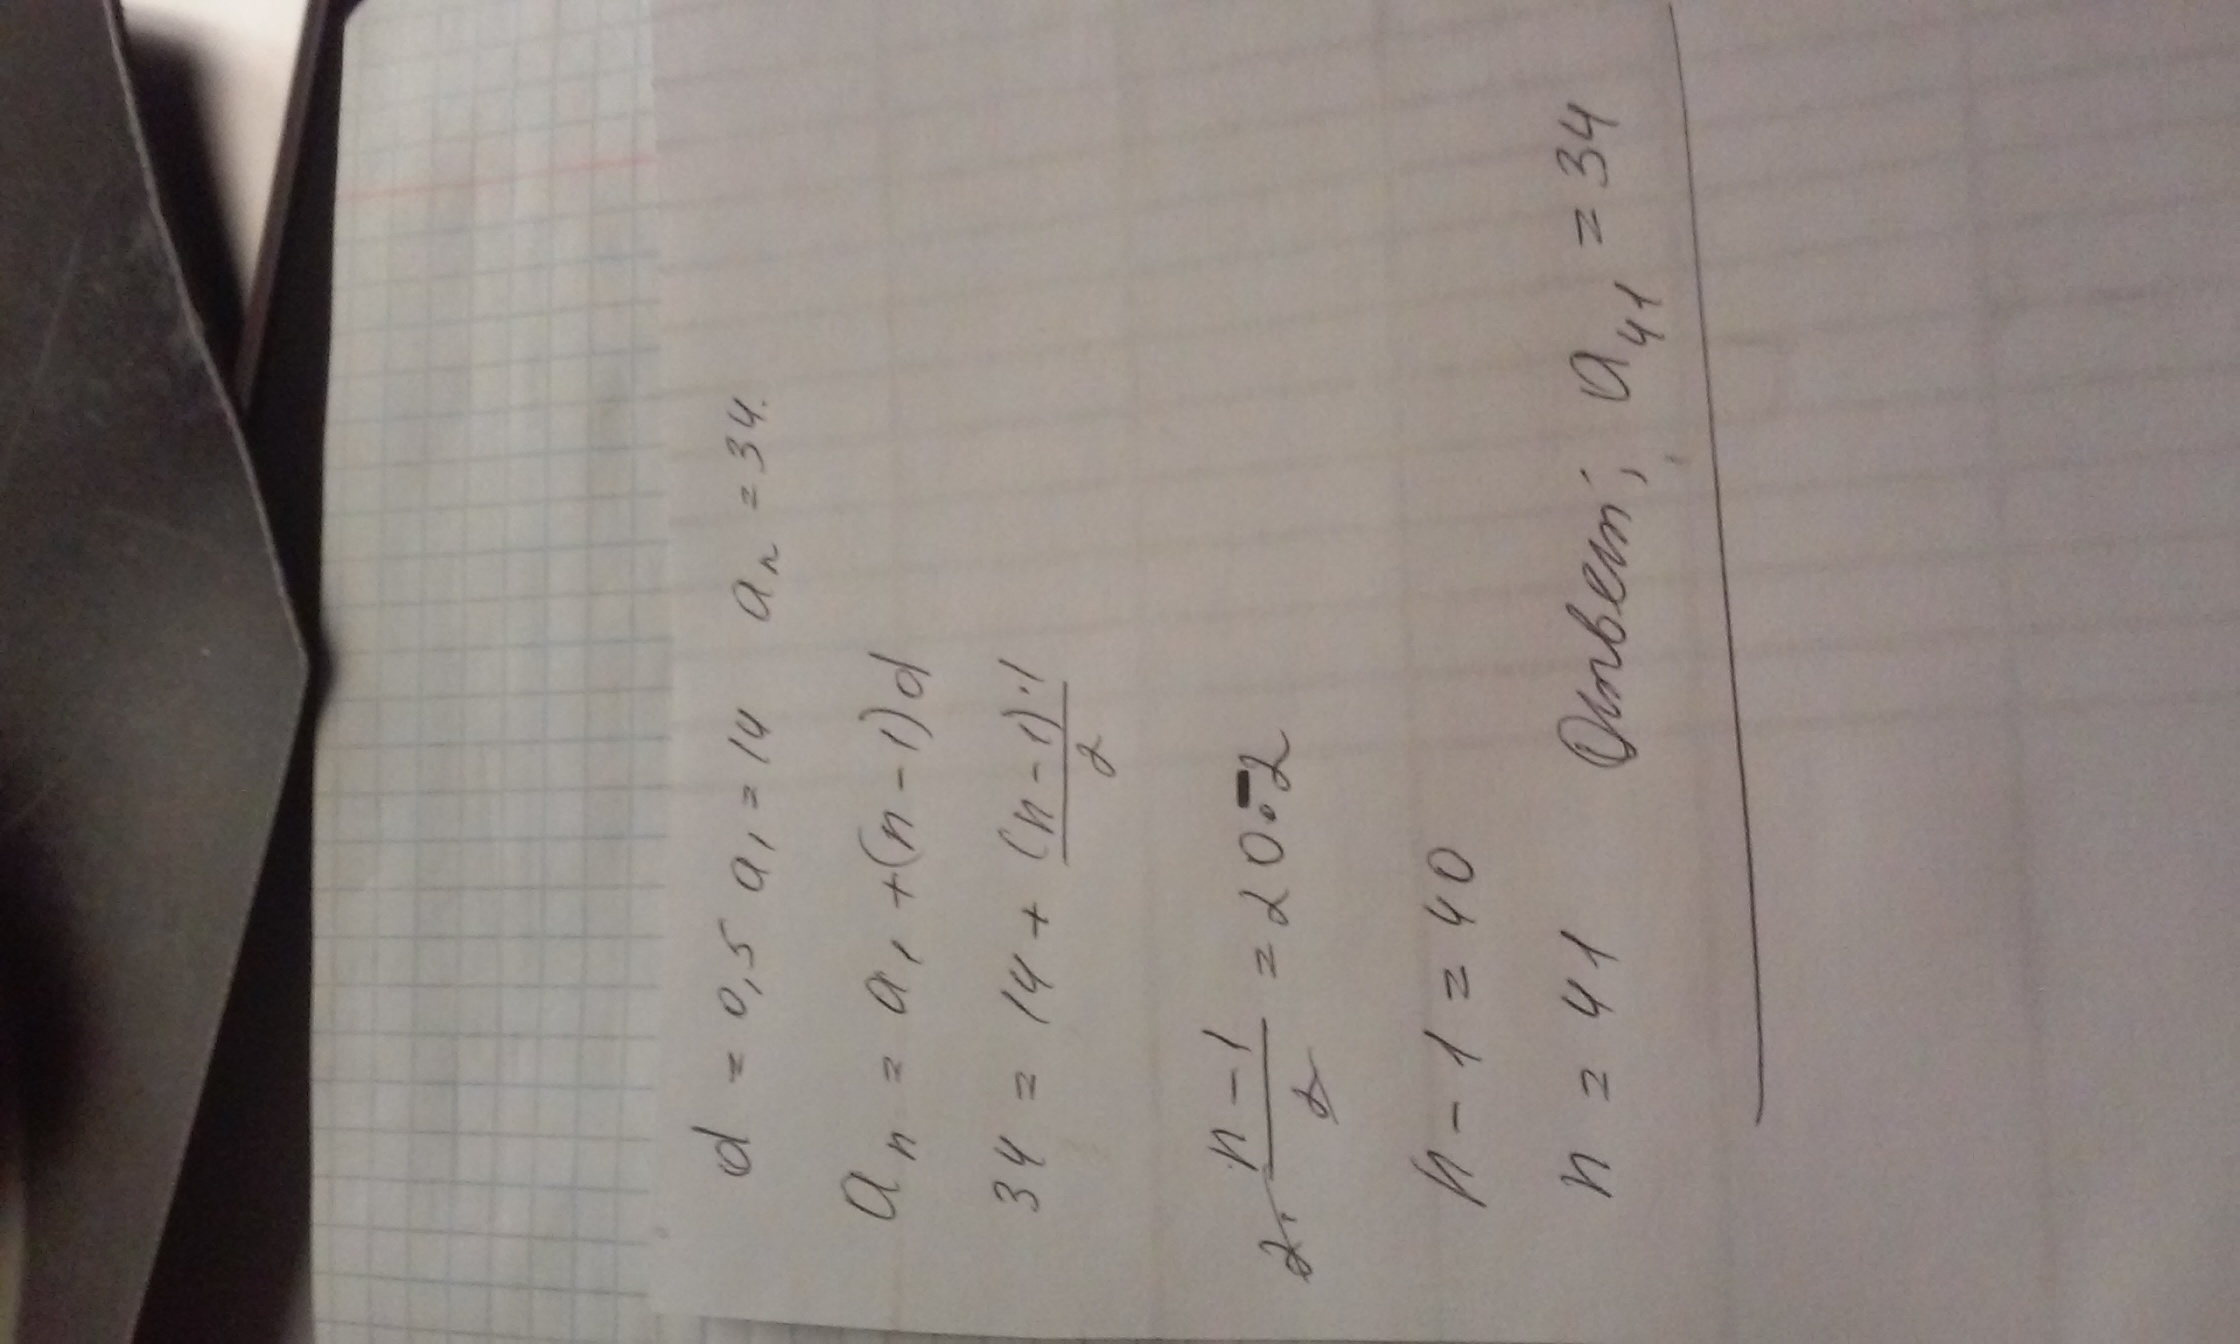 d = 0,5 a₁ = 14 aₙ = 34.
aₙ = a₁ + (n - 1)d
34 = 14 + (n - 1)·1/2
2· n - 1/2 = 20·2
n - 1 = 40
n = 41 Ответ; a₄₁ = 34